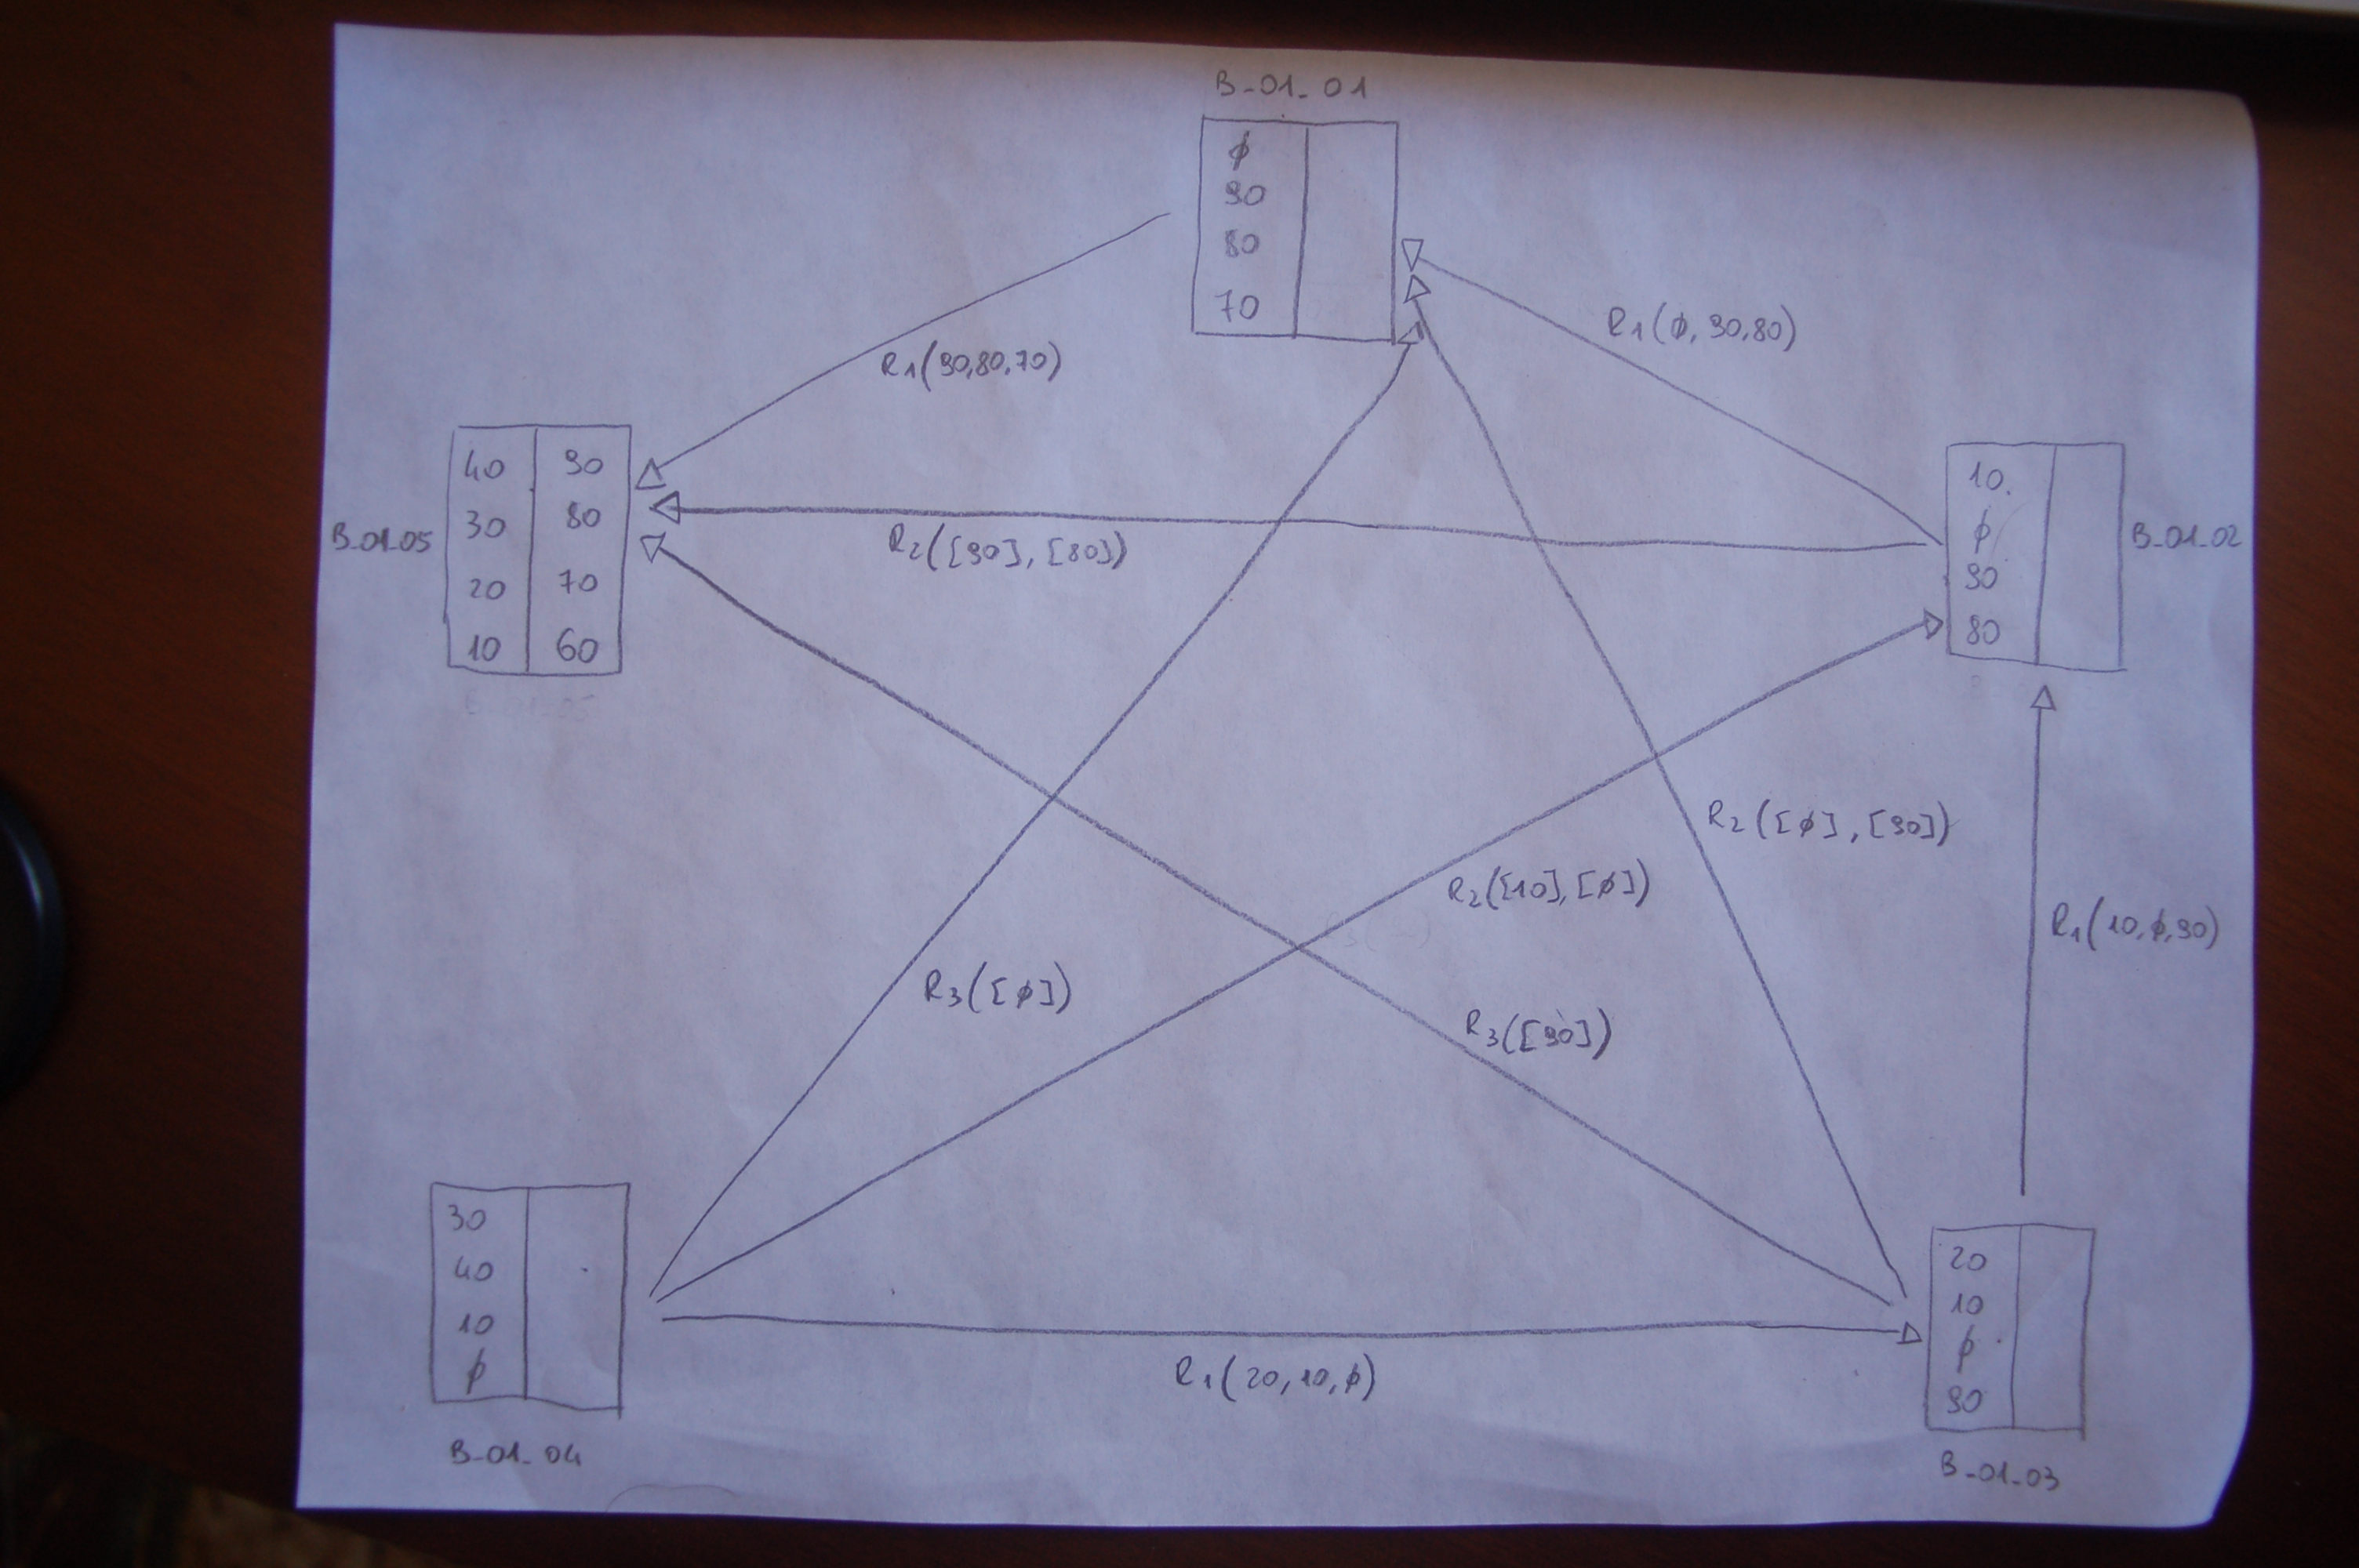 B_01_01
ϕ
90
80
70
R1(ϕ, 90, 80)
R1(90,80,70)
40 90
30 80
20 70
10 60
B_01_05
R2([90], [80])
10.
ϕ
90
80
B_01_02
R2([ϕ], [90])
R2([10], [ϕ])
R1(10,ϕ,90)
R3([ϕ])
R3([90])
30
40
10
ϕ
B_01_04
R1(20,10,ϕ)
20
10
ϕ
90
B_01_03